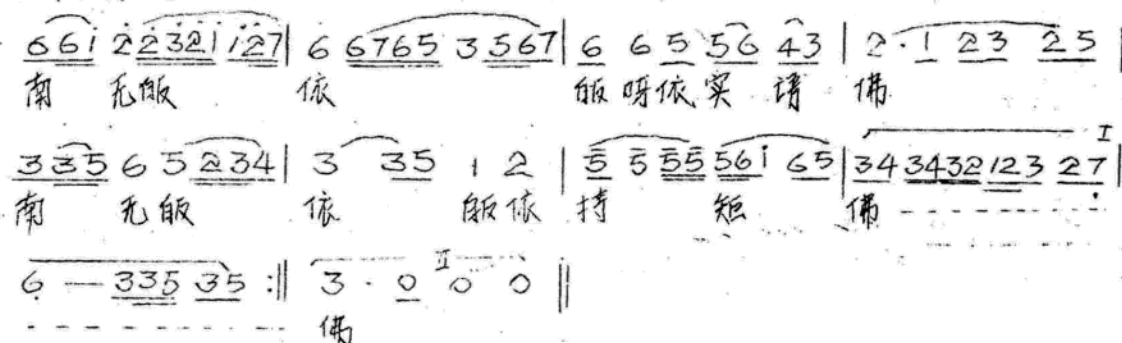 6 6 i 2 2 3 2 1 i 2 7 | 6 6 7 6 5 3 5 6 7 | 6 6 5 5 6 4 3 | 2 · 1 2 3 2 5 |
南 无皈 依 皈呀依实 请 佛
3 3 5 6 5 2 3 4 | 3 3 5 1 2 | 5 5 5 5 5 6 i 6 5 | 3 4 3 4 3 2 1 2 3 2 7 |
南 无皈 依 皈依 持 短 佛
6 — 3 3 5 3 5 :‖ 3 · 0 0 0 ‖
佛